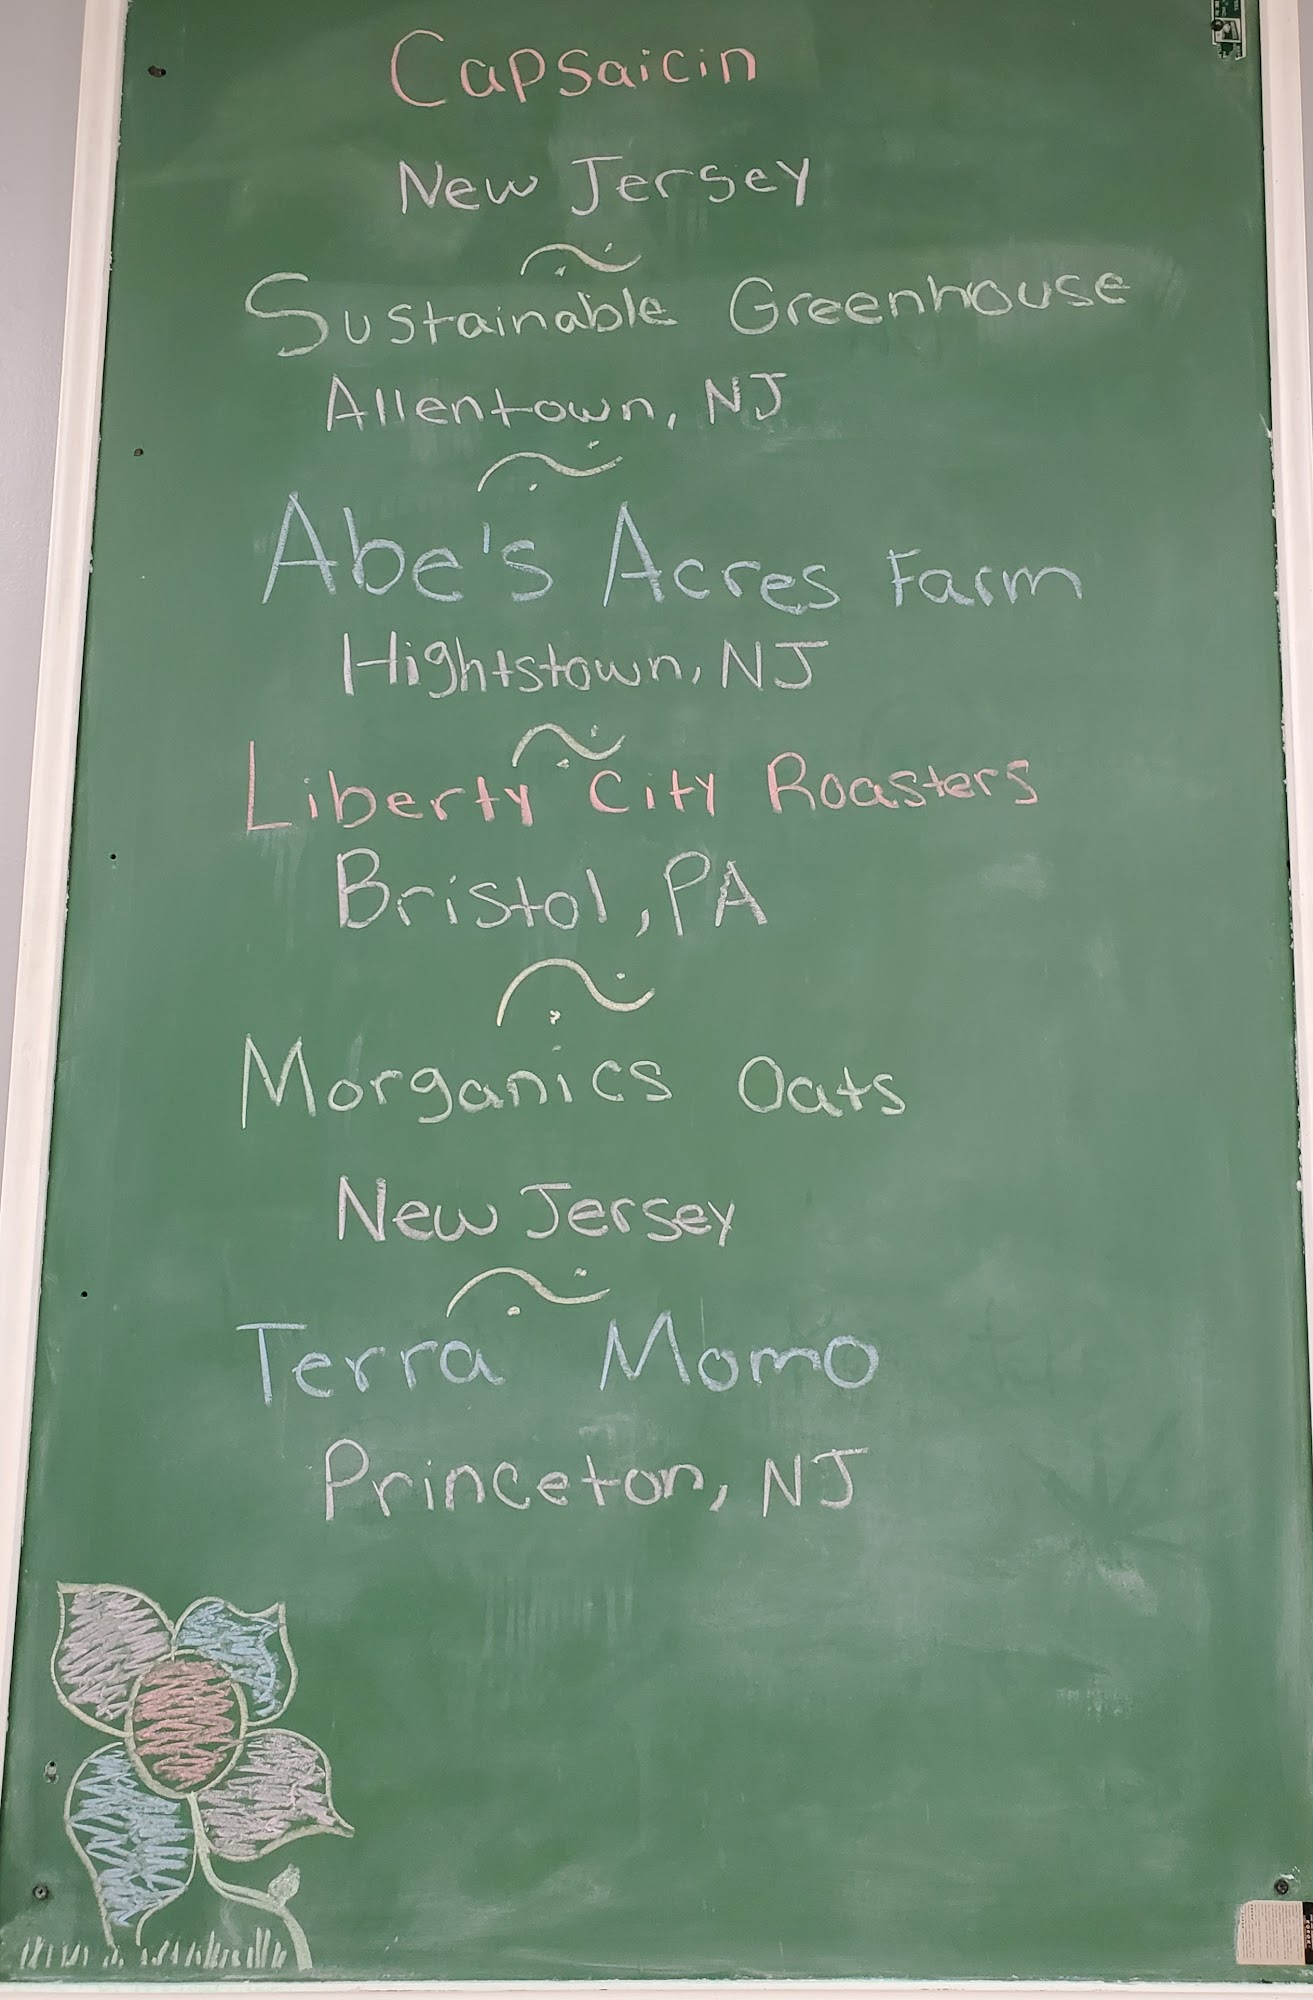 Capsaicin
New Jersey
Sustainable Greenhouse
Allentown, NJ
Abe's Acres Farm
Hightstown, NJ
Liberty City Roasters
Bristol, PA
Morganics Oats
New Jersey
Terra Momo
Princeton, NJ